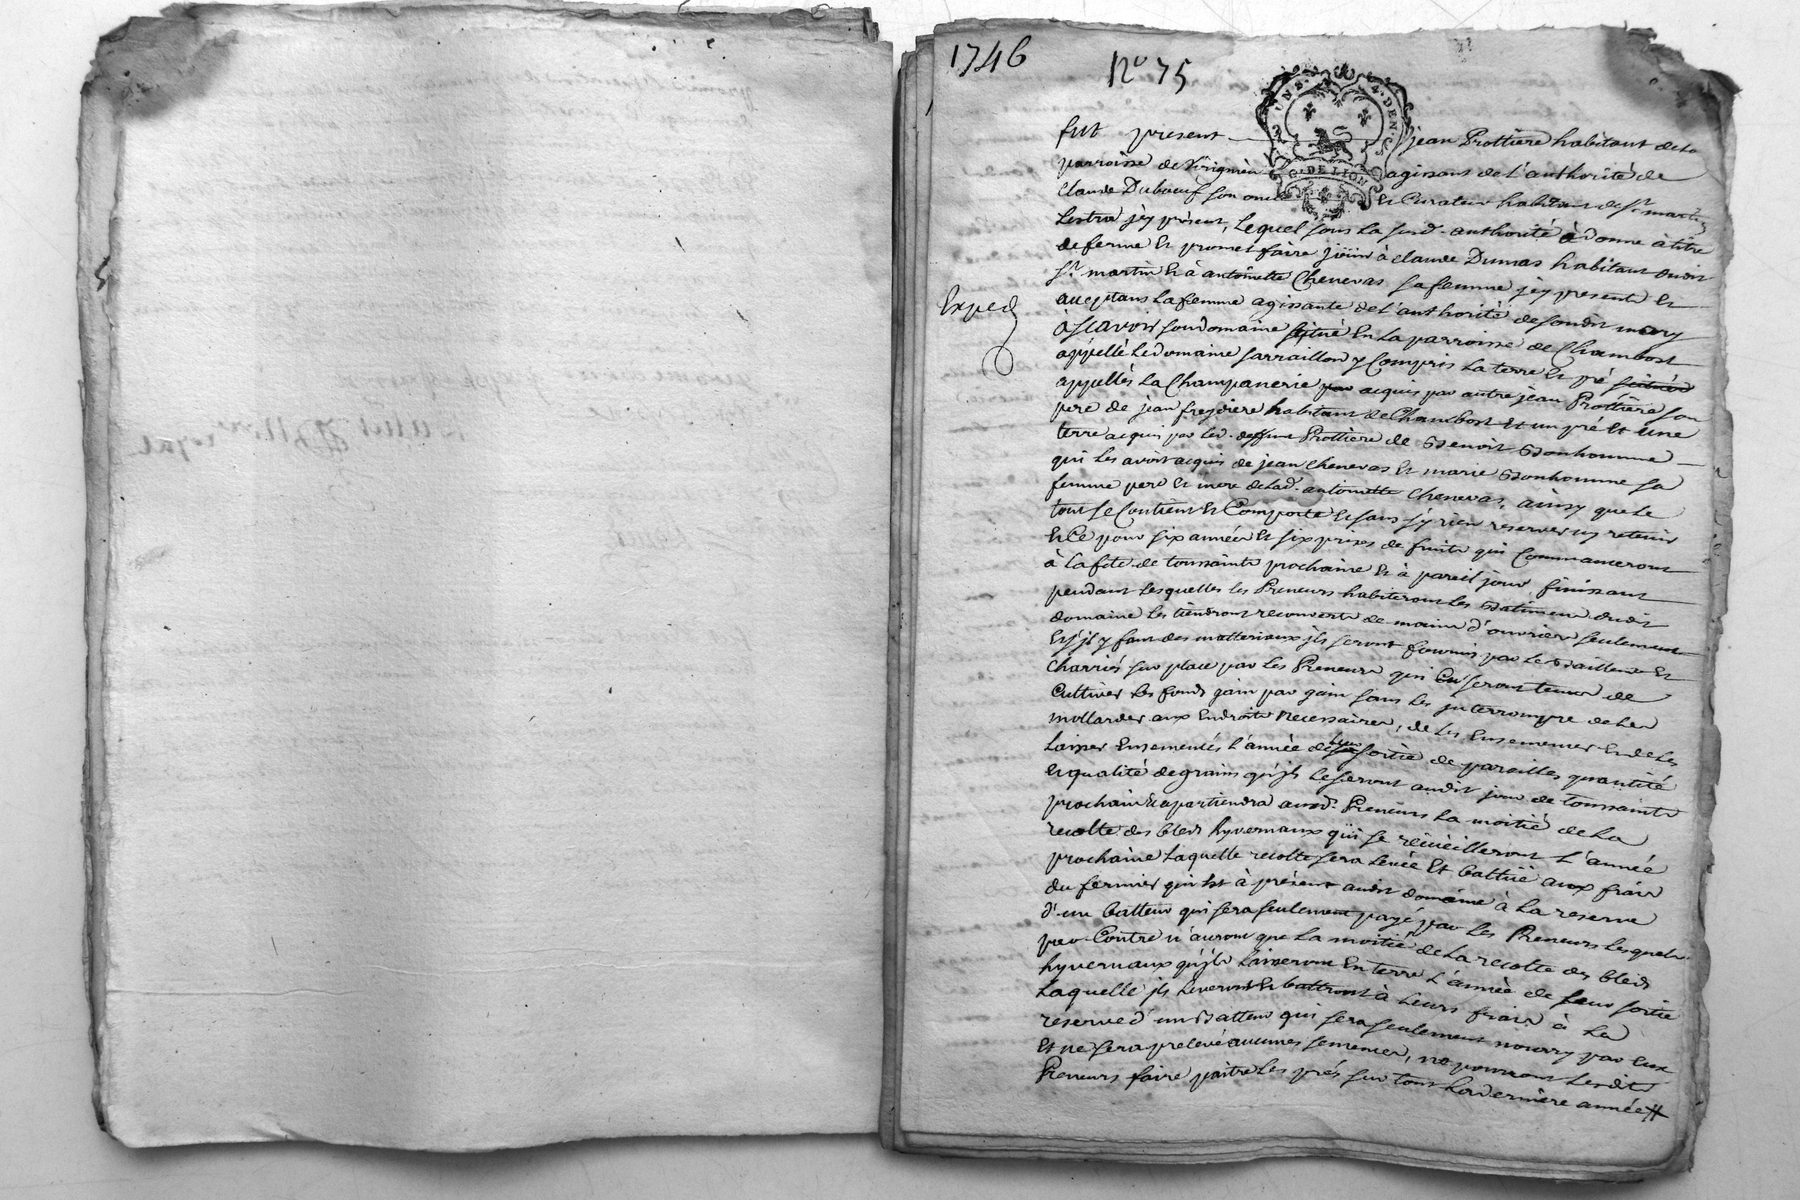 1746
No 75
UNS. 4. DEN.
G. DE LION
fut present jean Prottiere habitant de la
parroisse de Virignieu agissant de l'authorité de
Claude Duboeuf son oncle et Curateur habitant de St martin
Lestra jcy present, Lequel sous la susd. authorité à donne à titre
de ferme Et promet faire joüir à claude Dumas habitant dudit
St martin Et à antoinette Chenevas sa femme jcy presents Et
acceptans La femme agissante de l'authorité de sondit mary
Exped
àscavoir son domaine situé En La parroisse de Chambost
appellé Le domaine sarraillon y Compris La terre Et pré scituées
appellés La Champanerie par acquis par autre jean Prottière son
pere de jean freydiere habitant de Chambost Et un pré Et une
terre acquis par led. deffunt Prottiere de Benoit Bonhomme
qui Les avoit acquis de jean Chenevas Et marie Bonhomme sa
femme pere Et mere de Lad. antoinette Chenevas, ainsy que Le
tout se Contient Et Comporte Et sans s'y rien reserver ny retenir
Et Ce pour six années Et six prises de fruits qui Commanceront
à La fete de toussaints prochaine Et à pareil jour finissant
pendant Lesquelles les Preneurs habiteront Les Batimens dudit
domaine Les tiendront recouverts de mains d'ouvriers seulement
Et s'jl y faut des matteriaux jls seront fournis par Le Bailleur Et
Charriés sur place par Les Preneurs qui En seront tenus de
Cultiver Les fonds gain par gain sans Les jnterrompre de Les
mollarder aux Endroits Necessaires, de Les Ensemencer Et de Les
Laisser Ensemencés L'année de leur sortie de pareilles quantité
Et qualité de grains qu'jls Le seront audit jour de toussaints
prochain Et apartiendra ausd. Preneurs La moitié de La
recolte des bleds hyvernaux qui se reciieilleront L'année
prochaine Laquelle recolte sera Levée Et battüe aux frais
du fermier qui Est à présent audit domaine à La reserve
d'un batteur qui sera seulement payé par Les Preneurs Lesquels
par Contre n'auront que La moitié de La recolte des bleds
hyvernaux qu'jls Laisseront En terre L'année de Leur sortie
Laquelle jls Leveront Et battront à Leurs frais à La
reserve d'un Batteur qui sera seulement nourry par Eux
Et ne sera prelevé aucunes semences, ne pourront Lesdits
Preneurs faire paitre Les prés sur tout La derniere année #